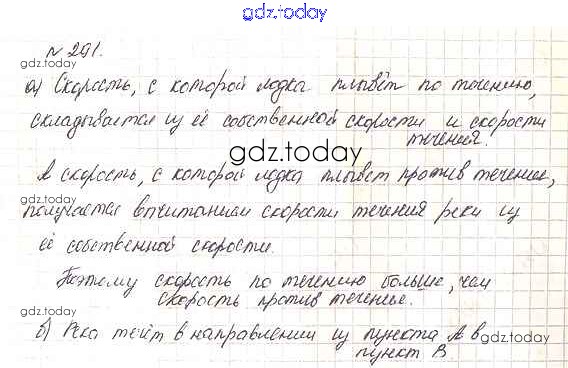 gdz.today
№ 291.
gdz.today
а) Скорость, с которой лодка плывёт по течению,
складывается из её собственной скорости и скорости
течения.
gdz.today
А скорость, с которой лодка плывет против течение,
gdz.today
получается вычитанием скорости течения реки из
её собственной скорости.
Поэтому скорость по течению больше, чем
скорость против течение.
gdz.today
gdz.today
б) Река течёт в направлении из пункта А в
пункт В.
gdz.today
gdz.today